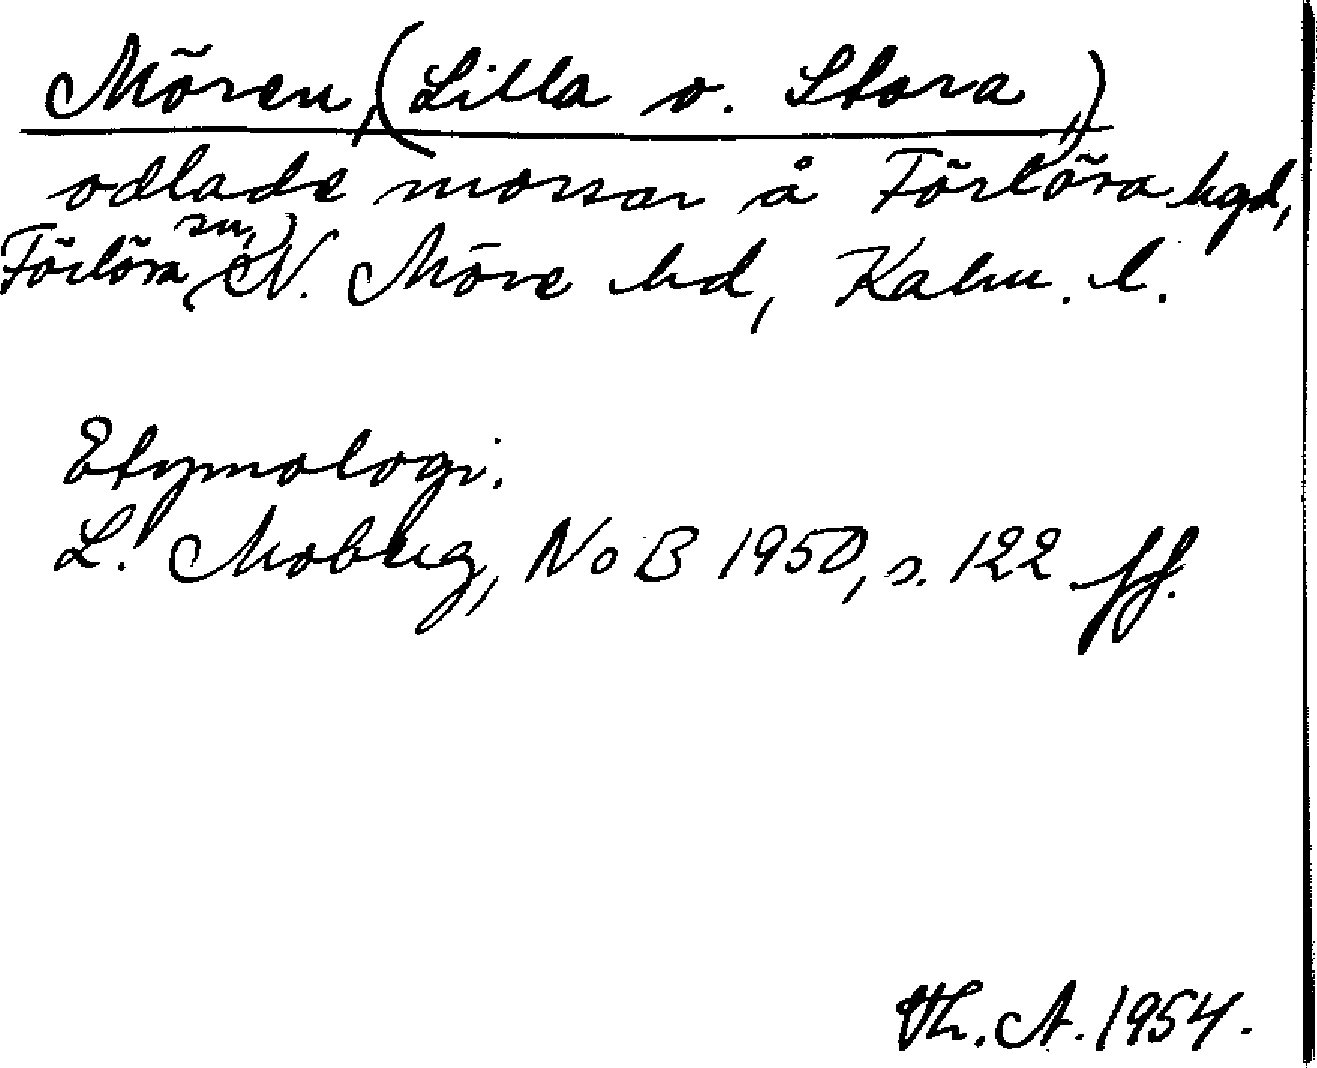 Mören, (Lilla o. Stora),
odlade mossar å Förlösa hgd,
Förlösa sn, N. Möre hd, Kalm. l.
Etymologi.
L. Moberg, NoB 1950, s. 122 ff.
Th. A. 1954.